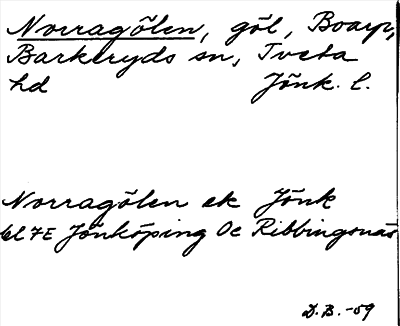 Norragölen, göl, Boarp,
Barkeryds sn, Tveta
hd Jönk. l.
Norragölen ek Jönk
bl 7E Jönköping Oc Ribbingsnäs
D.B. -59